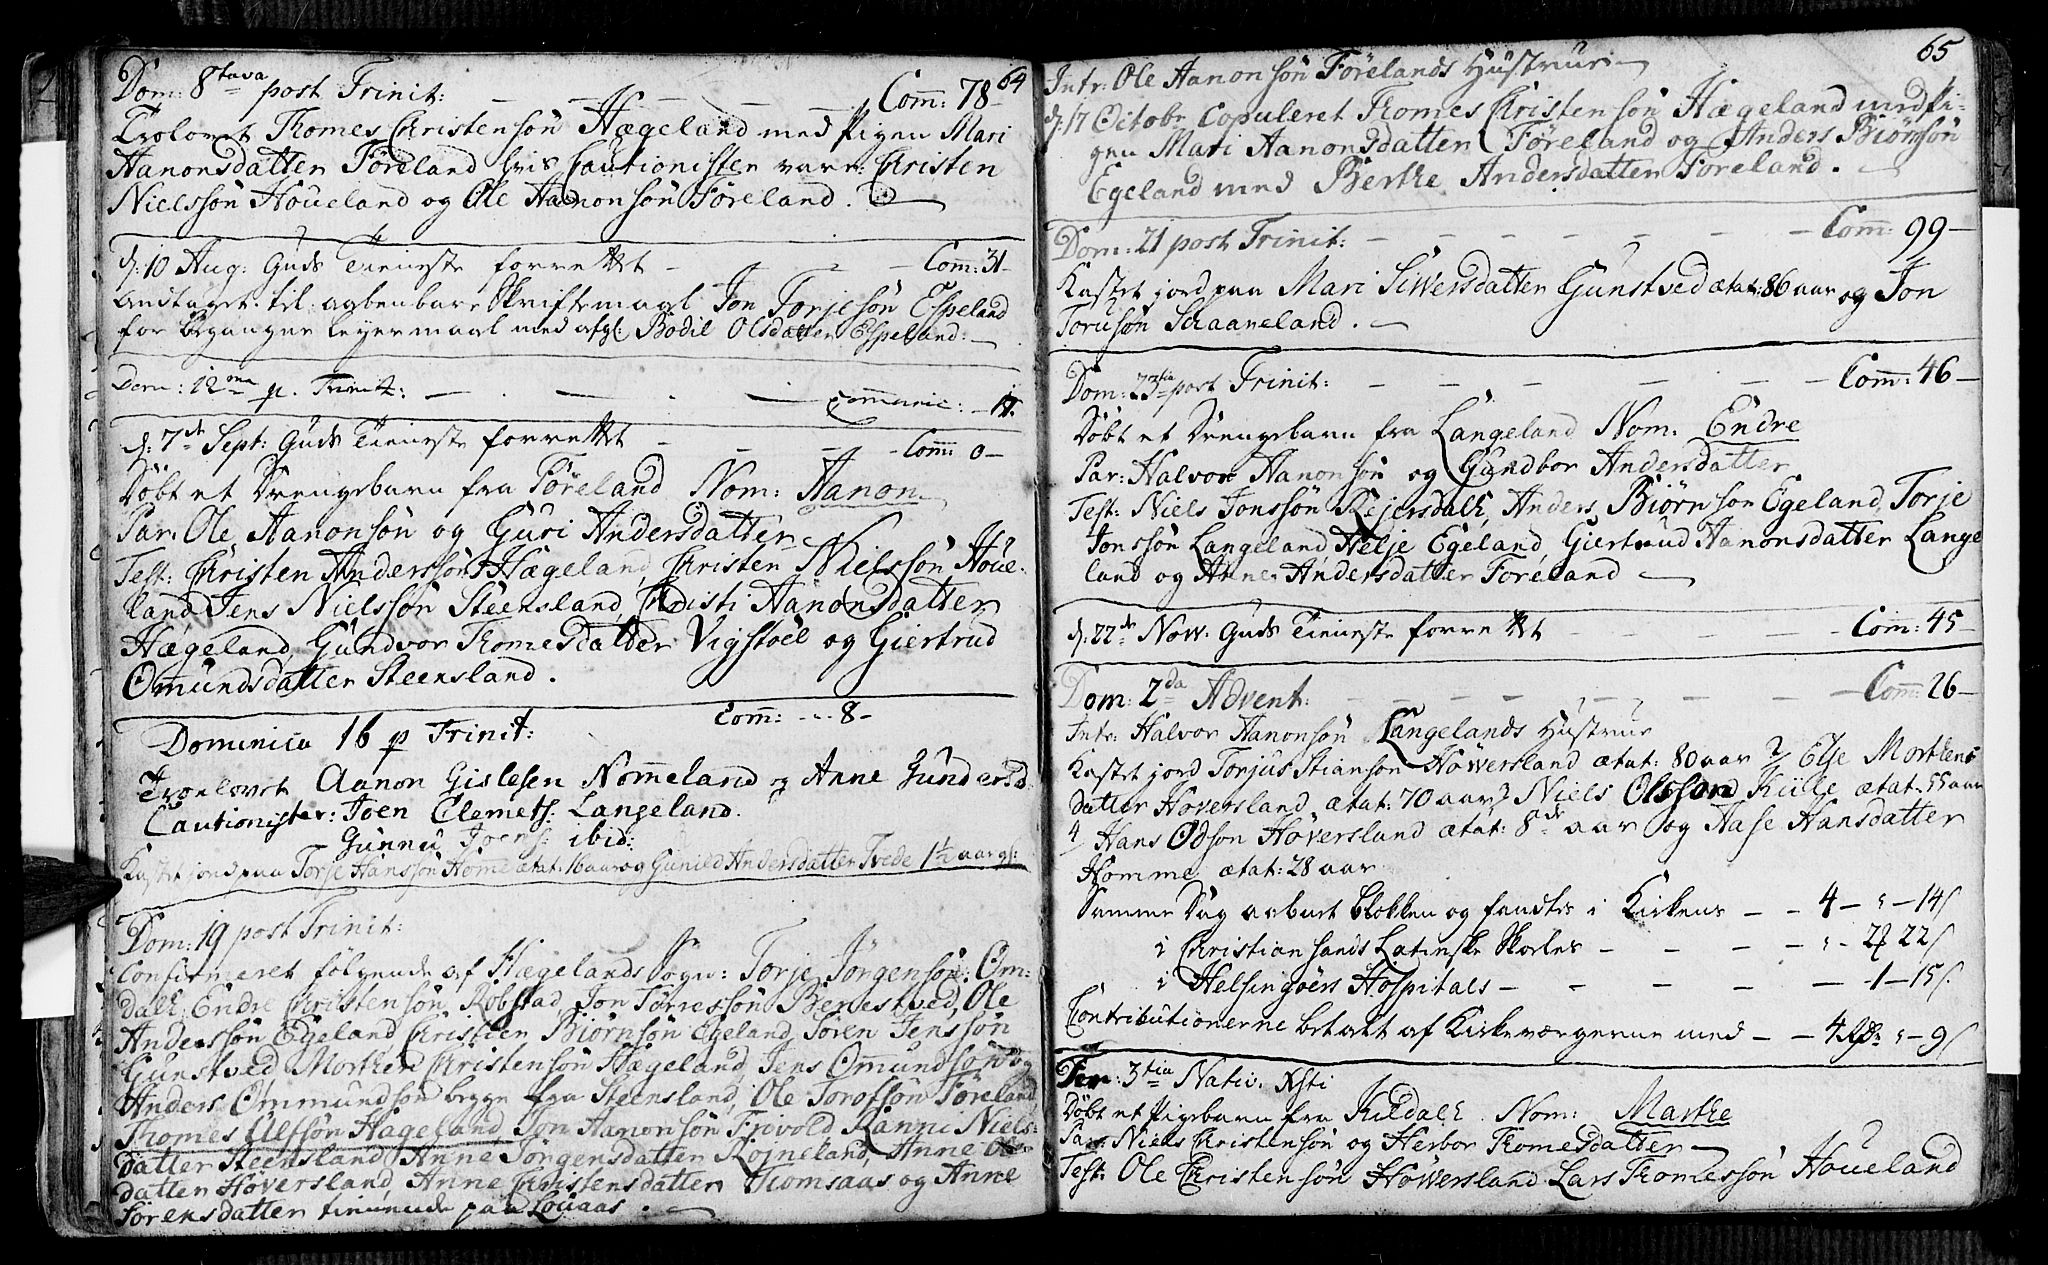 64
Dom: 8tava post Trinit: — — — — — Com̄: 78—
Trolovet Thomes Christensøn Hægeland med Pigen Mari
Aanonsdatter Føreland hvis Cautionister vare: Christen
Nielssøn Houeland og Ole Aanonsøn Føreland.
d: 10 Aug: Guds Tieneste forrettet — — — Com̄: 31—
Andtaget til aabenbare Skriftemaal Jon Torjesøn Espeland
for begangne leyermaal med Bodil Olsdatter Espeland.
Dom: 12ma p. Trinit: — — — — com̄unic: — 17.
d: 7de Sept: Guds Tieneste forrettet — — — Com̄: 0—
Døbt et Drengebarn fra Føreland Nom: Aanon
Par: Ole Aanonsøn og Guri Andersdatter
Test: Christen Anderssøn Hægeland, Christen Nielssøn Houe-
land, Jens Nielssøn Steensland, Christi Aanonsdatter
Hægeland, Gundvor Thomesdatter Vigstøel og Giertrud
Omundsdatter Steensland.
Com̄: - - - 8 -
Dominica 16 p Trinit:
Troelovet Aanon Gislesen Nom̄eland og Anne Gundersd.
Cautionister: Joen Clemets: Langeland.
Gunnu Joens: ibid:
Kastet jord paa Torje Hanssøn Home ætat: 16 aar og Gunild Andersdatter Tvede 1½ aar gl:
Dom: 19 post Trinit:
Confirmeret følgende af Hægelands Sogn: Torje Jørgensøn Om-
dall, Endre Christensøn Robstad, Jon Tørressøn Benestved, Ole
Anderssøn Egeland Christen Biørnsøn Egeland, Søren Jenssøn
Gunstved Morthen Christensøn Hægeland, Jens Om̄undsøn og
Anders Ommundsøn begge fra Steensland, Ole Torofsøn Føreland
Thomes Ulfsøn Hageland Jon Aanonsøn Fjvold Kanni Niels-
datter Steensland, Anne Jørgensdatter Røjneland, Anne Ols-
datter Høversland, Anne Christensdatter Tiomsaas og Anne
Sørensdatter tienende paa Louaas.
65
Intr: Ole Aanonsøn Førelands Hustrue
d: 17 Octobr. Copuleret Thomes Christensøn Hægeland med Pi-
gen Mari Aanonsdatter Føreland og Anders Biørnsøn
Egeland med Berthe Andersdatter Føreland.
Dom: 21 post Trinit: — — — — — — — Com̄: 99—
Kastet jord paa Mari Siwersdatter Gunstved ætat: 86 aar og Jon
Torusøn Schaaneland.
Dom: 23tia post Trinit: — — — — — — Com̄: 46—
Døbt et Drengebarn fra Langeland Nom: Endre
Par: Halvor Aanonsøn og Gundbor Andersdatter
Test: Niels Jonssøn Rejersdall, Anders Biørnsøn Egeland, Torje
Jonssøn Langeland, Helje Egeland, Giertrud Aanonsdatter Lange
land og Anne Andersdatter Føreland
d: 22de Now. Guds Tieneste forrettet — — — — Com: 45—
Dom: 2da Advent: — — — — — — — Com̄: 26—
Intr: Halvor Aanonsøn Langelands Hustrue
Kastet jord Torjus Stiansøn Høwersland ætat: 80 aar 2/ Else Morthens
datter Høversland ætat: 70 aar 3 Niels Olsson Kiile ætat. 55 aar
4/ Hans Odson Høversland ætat: 8de aar og Aase Hansdatter
Homme ætat: 28 aar
Samme Dag aabnet Blokken og fandtes i Kirkens — — 4 — „ — 14 s
i Christiansands Latinske Skoeles — — — — „ — 22 s
i Helsingøers Hospitals — — — — — 1 — 15 s.
Contributionerne betalt af Kirkeværgerne med — — 4 Rdr „ — 9 s
Fer: 3tia Nativ. Xsti
Døbt et Pigebarn fra Kildall Nom: Marthe
Par: Niels Christensøn og Herbor Thomesdatter
Test: Ole Christensøn Høwersland Lars Thomessøn Houeland